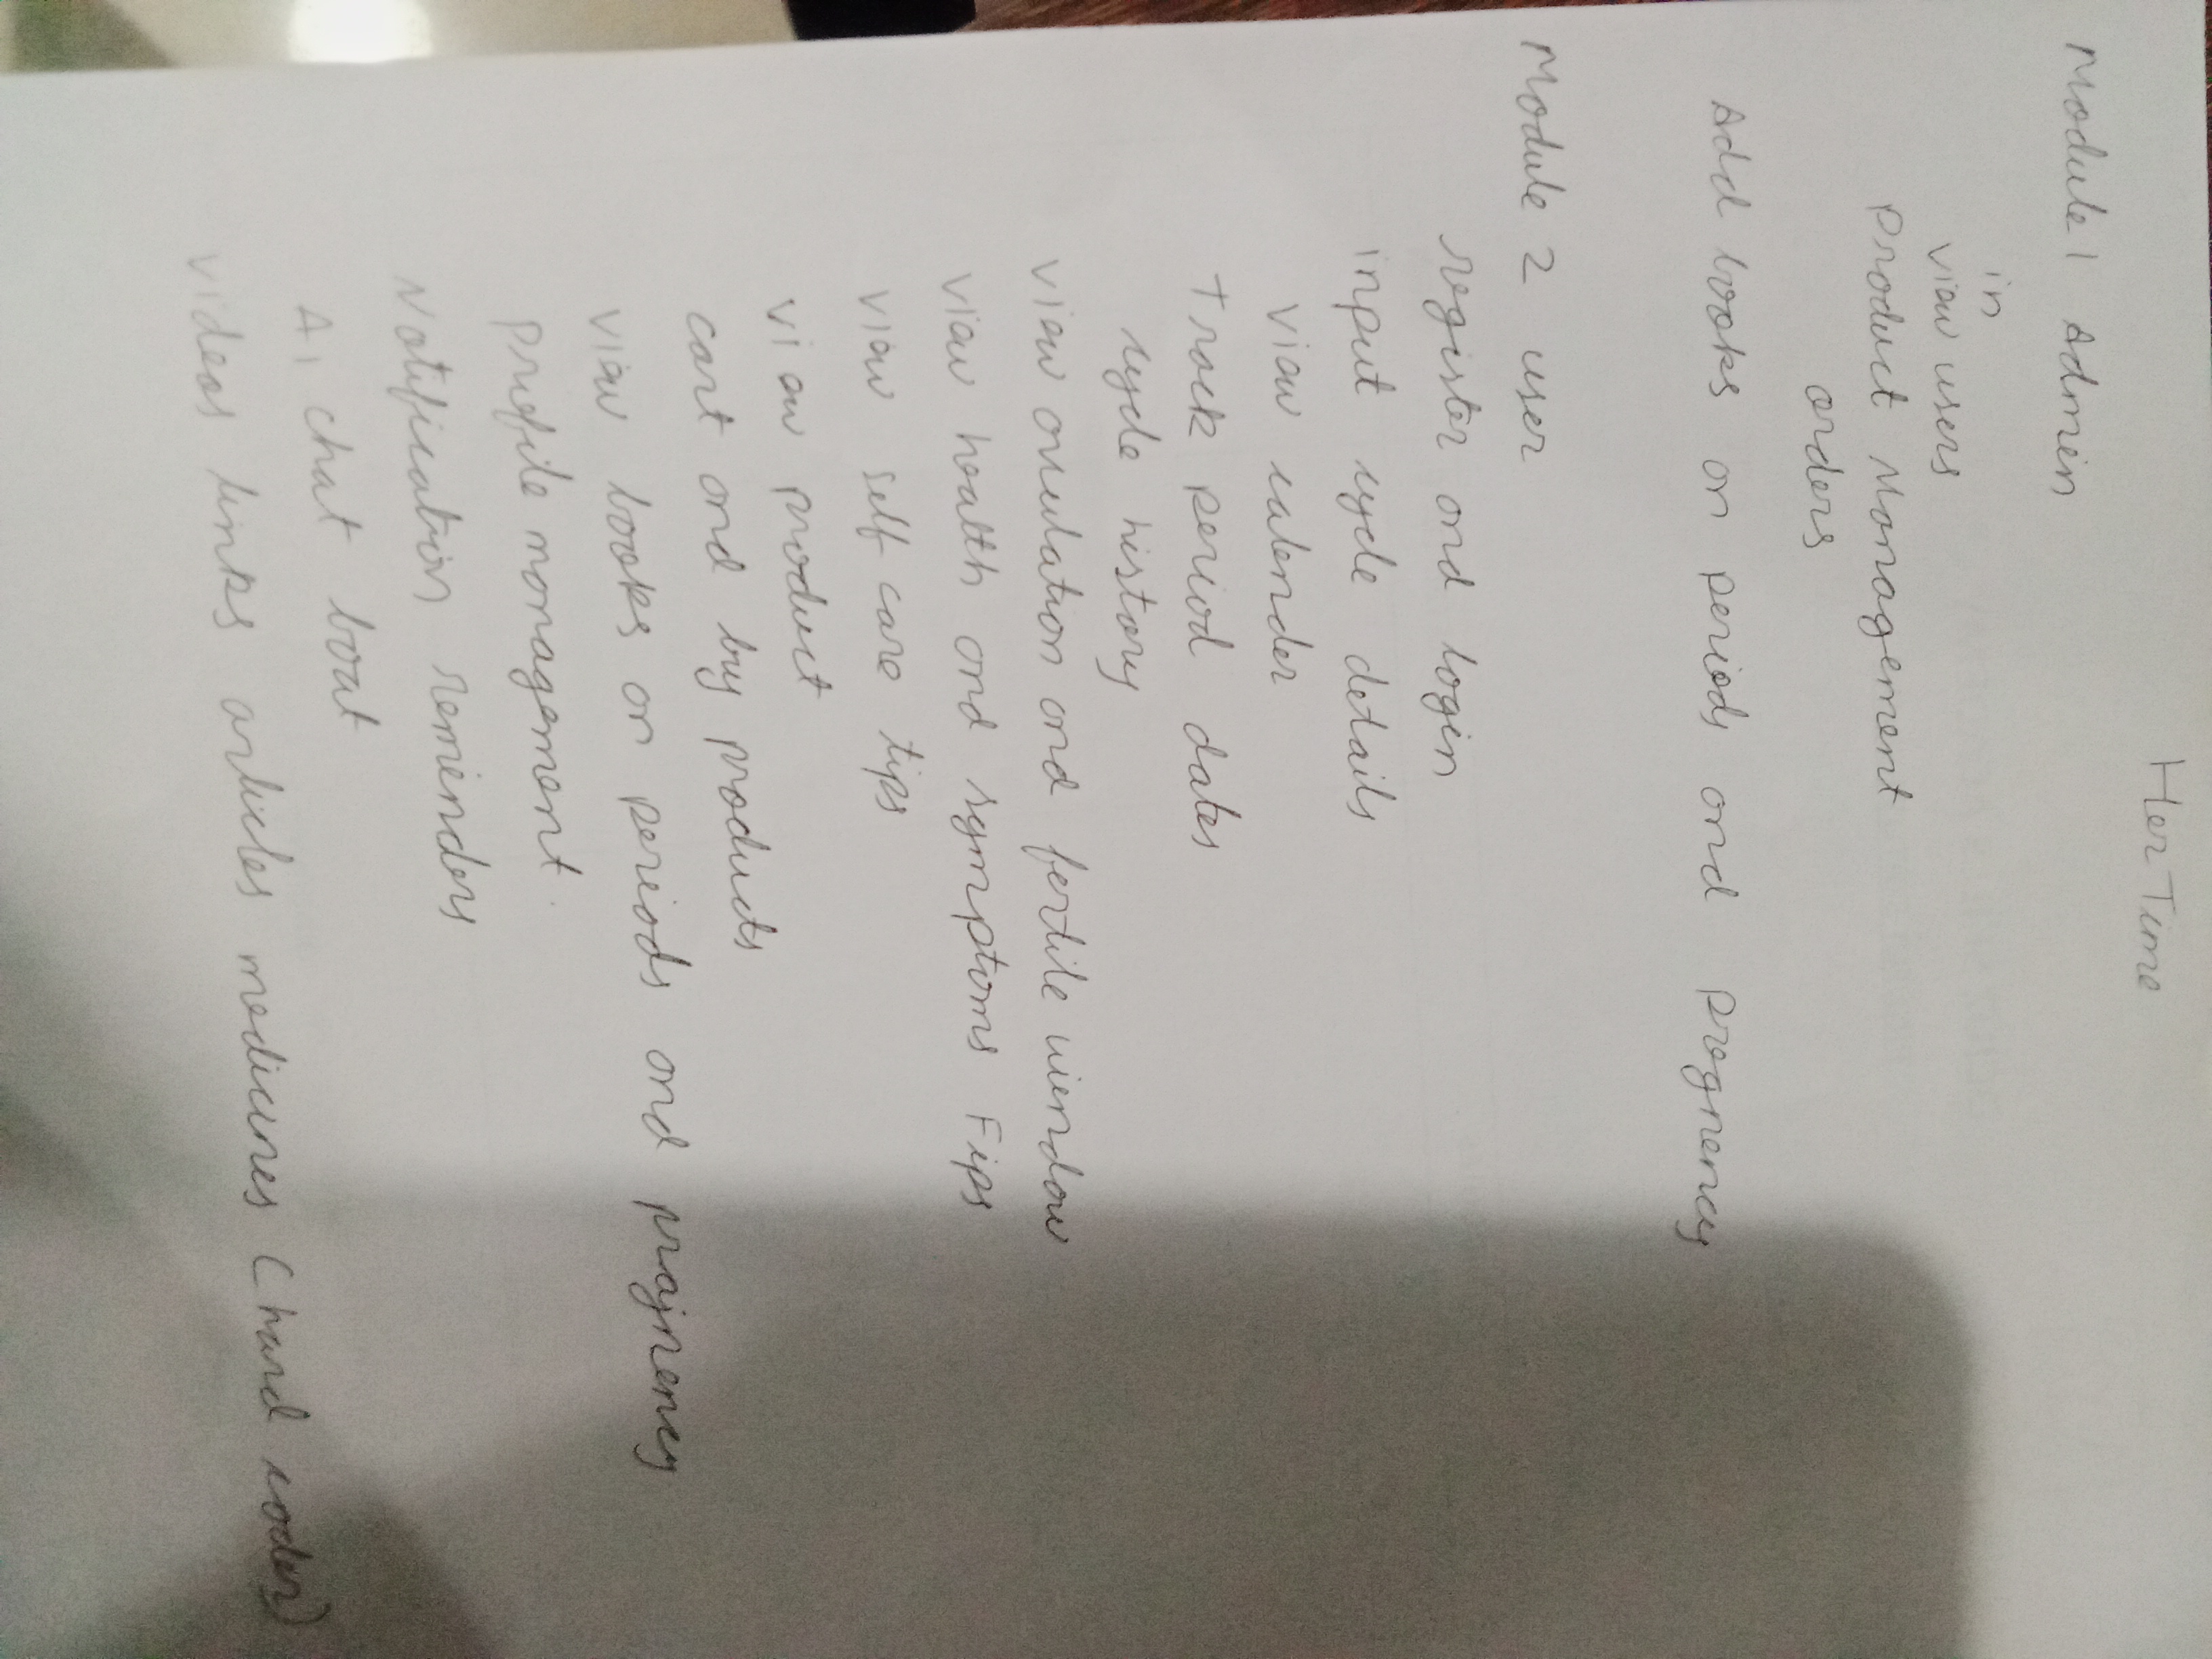 Her Time
Module 1 Admin
in
view users
Product Management
orders
Add books on periods and pregnency
Module 2 user
register and login
input cycle details
view calender
Track period dates
cycle history
view ovulation and fertile window
view health and symptoms Fips
view self care tips
view product
cart and by products
view books on periods and prajnency
profile management.
Notification reminders
Ai chat boat
videos links articles medicines (hard coder)